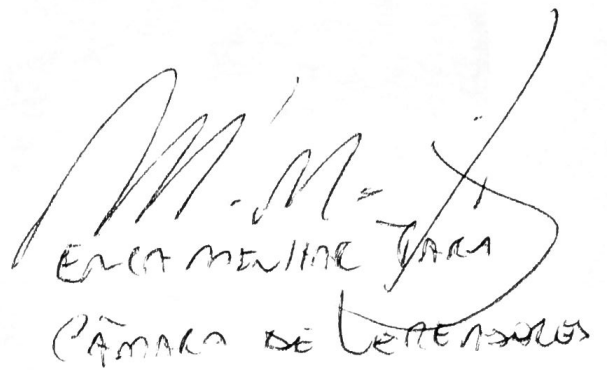 ENCAMINHAR PARA
CÂMARA DE VEREADORES